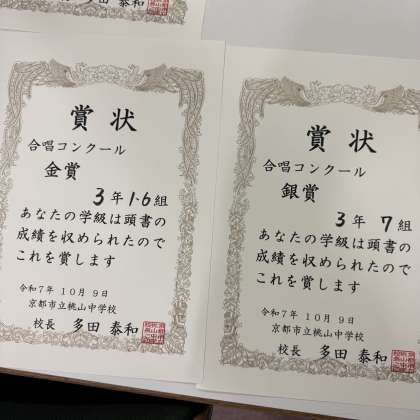 多田 泰和
賞状
合唱コンクール
金賞
3年1・6組
あなたの学級は頭書の
成績を収められたので
これを賞します
令和7年10月9日
京都市立桃山中学校
校長 多田 泰和
賞状
合唱コンクール
銀賞
3年 7組
あなたの学級は頭書の
成績を収められたので
これを賞します
令和7年10月9日
京都市立桃山中学校
校長 多田 泰和